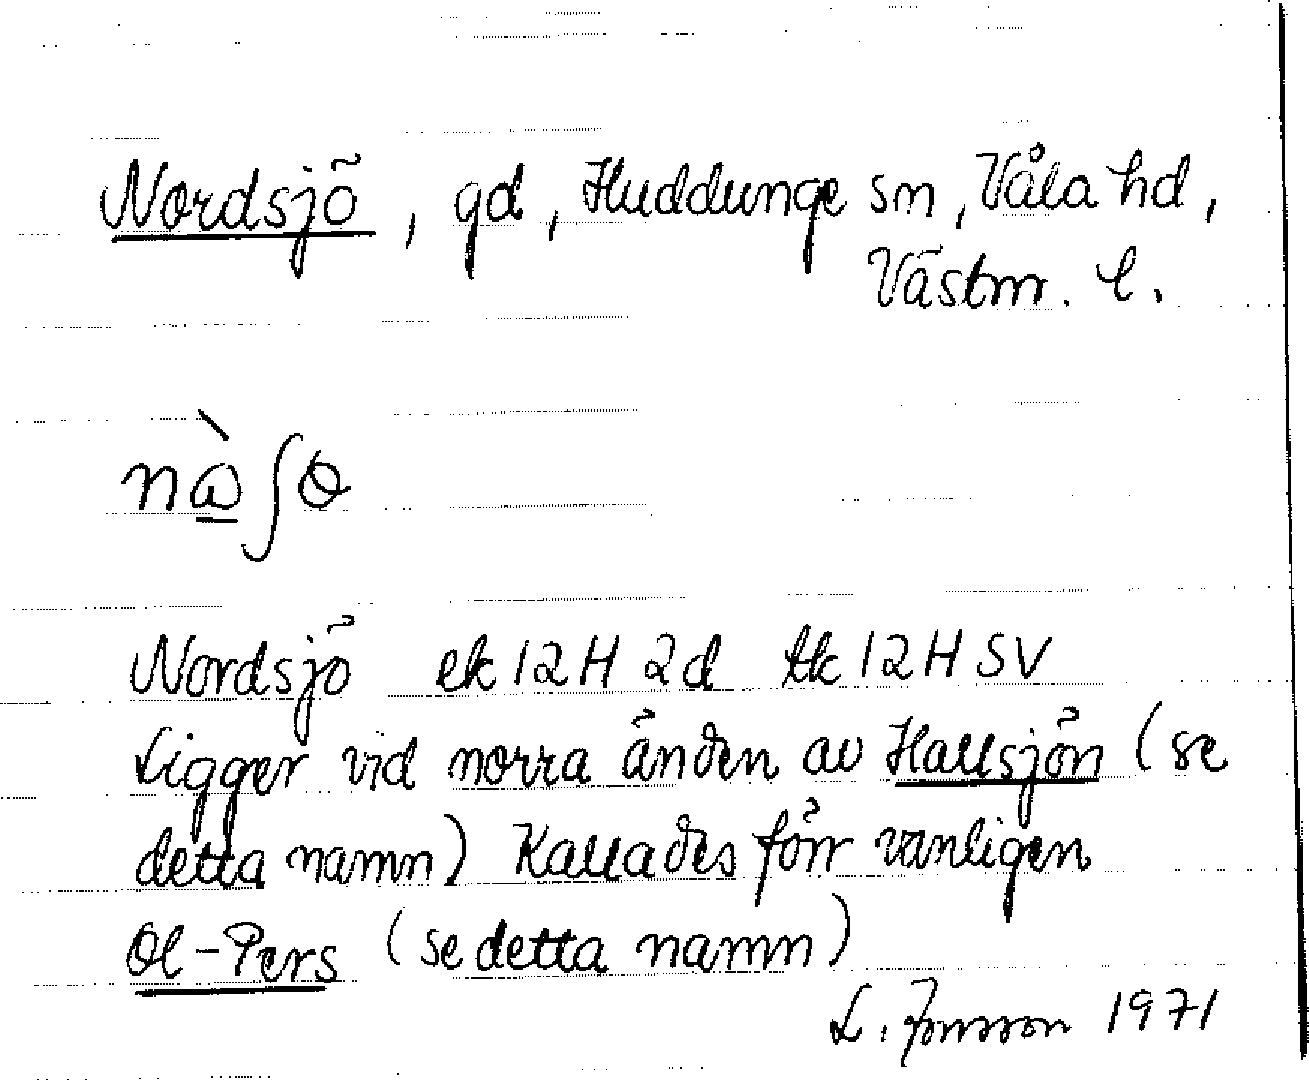 Nordsjö, gd, Huddunge sn, Våla hd,
Västm. l.
Nordsjö ek 12H 2d tk 12H SV
Ligger vid norra änden av Hallsjön (se
detta namn) Kallades förr vanligen
Ol-Pers (se detta namn)
L. Jonsson 1971